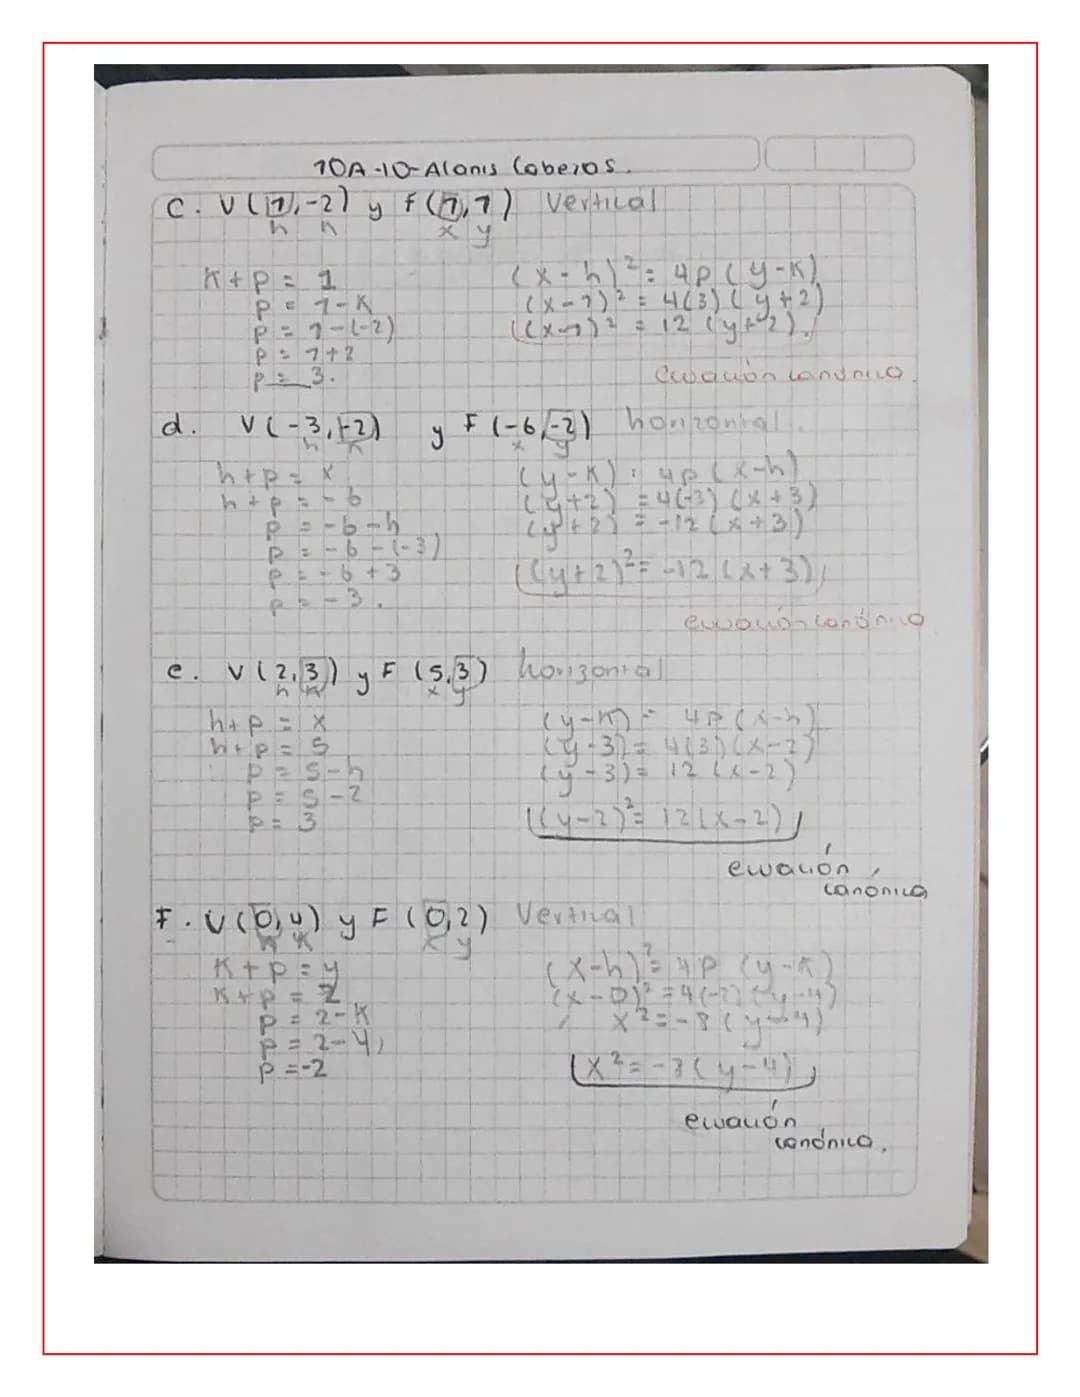 10A-10-Alanis Cabezas.
c. V(1,-2) y F(1,1) Vertical
h k x y
k+p = 1
p = 1-k
p = 1-(-2)
p = 1+2
p = 3.
(x-h)² = 4p(y-k)
(x-1)² = 4(3)(y+2)
(x-1)² = 12(y+2)
ecuación canónica.
d. V(-3,-2) y F(-6,-2) horizontal.
h k x y
h+p = x
h+p = -6
p = -6-h
p = -6-(-3)
p = -6+3
p = -3.
(y-k) = 4p(x-h)
(y+2) = 4(-3)(x+3)
(y+2) = -12(x+3)
(y+2)² = -12(x+3)
ecuación canónica
e. V(2,3) y F(5,3) horizontal
h k x y
h+p = x
h+p = 5
p = 5-h
p = 5-2
p = 3
(y-k) = 4p(x-h)
(y-3) = 4(3)(x-2)
(y-3) = 12(x-2)
(y-2)² = 12(x-2)
ecuación
canónica
F. V(0,4) y F(0,2) Vertical
x y
k+p = y
k+p = 2
p = 2-k
p = 2-4
p = -2
(x-h)² = 4p(y-k)
(x-0)² = 4(-2)(y-4)
x² = -8(y-4)
x² = -3(y-4)
ecuación
canónica.